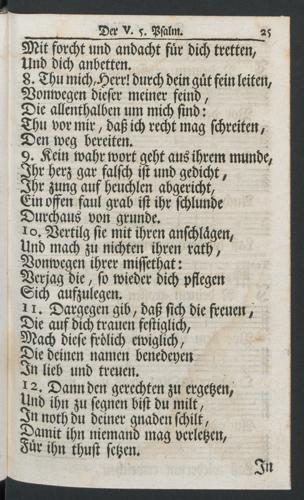 Der V. 5. Psalm. 25
Mit forcht und andacht für dich tretten,
Und dich anbetten.
8. Thu mich, Herr! durch dein güt fein leiten,
Vonwegen dieser meiner feind,
Die allenthalben um mich sind:
Thu vor mir, daß ich recht mag schreiten,
Den weg bereiten.
9. Kein wahr wort geht aus ihrem munde,
Ihr herz gar falsch ist und gedicht,
Ihr zung auf heuchlen abgericht,
Ein offen faul grab ist ihr schlunde
Durchaus von grunde.
10. Vertilg sie mit ihren anschlägen,
Und mach zu nichten ihren rath,
Vonwegen ihrer missethat:
Verjag die, so wieder dich pflegen
Sich aufzulegen.
11. Dargegen gib, daß sich die freuen,
Die auf dich trauen festiglich,
Mach diese frölich ewiglich,
Die deinen namen benedeyen
In lieb und treuen.
12. Dann den gerechten zu ergetzen,
Und ihn zu segnen bist du milt,
In noth du deiner gnaden schilt,
Damit ihn niemand mag verletzen,
Für ihn thust setzen.
In